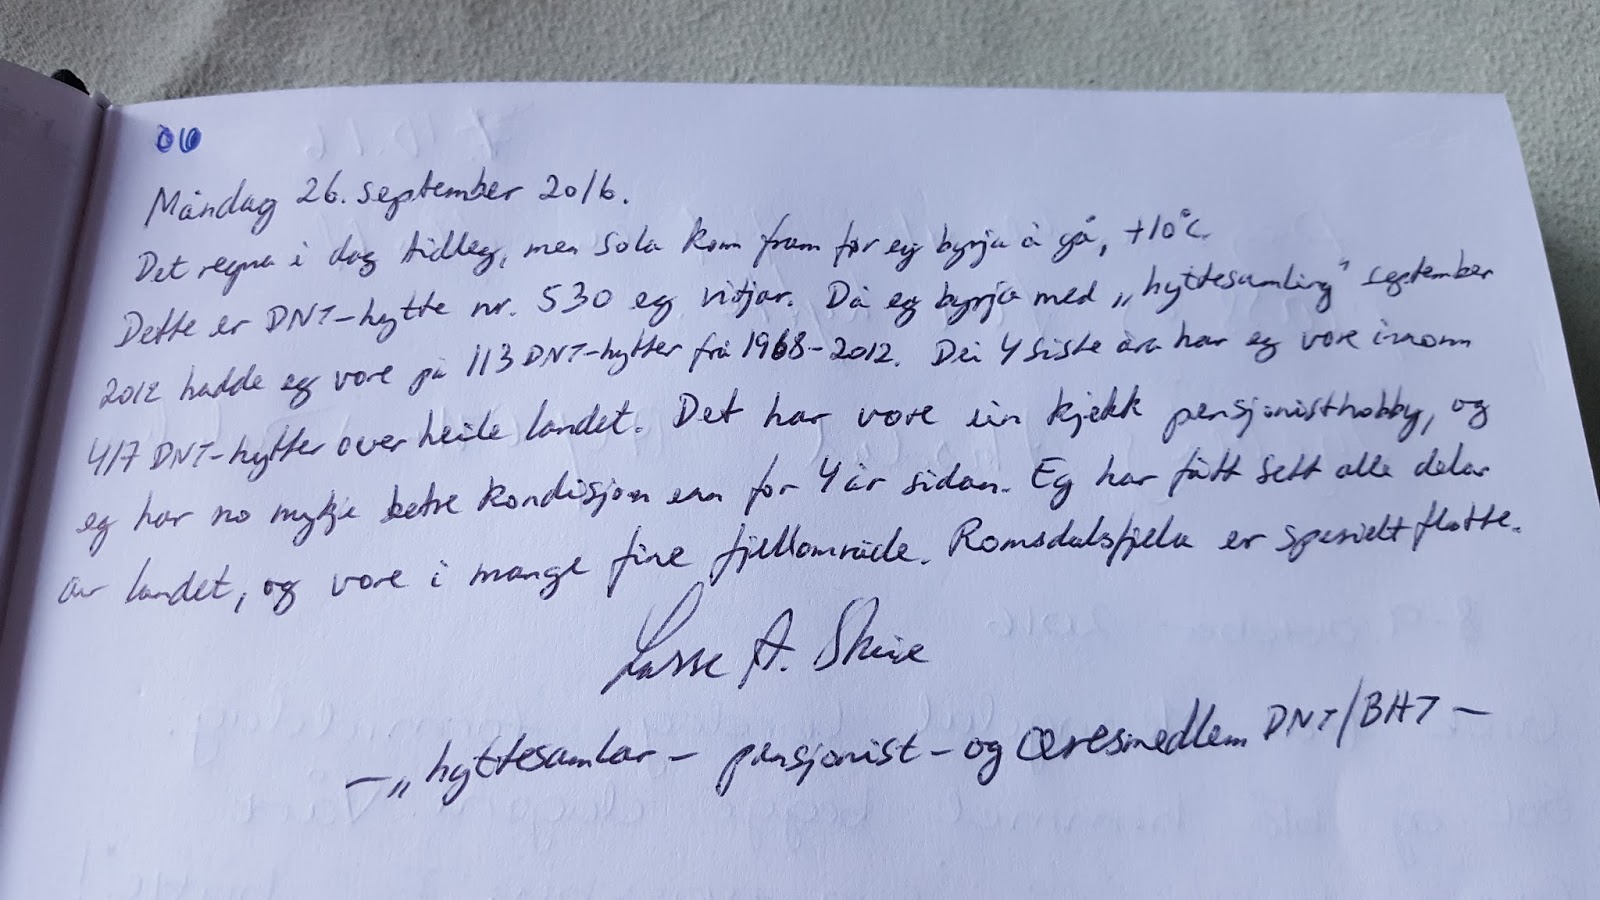 06
Måndag 26. september 2016.
Det regna i dag tidleg, men sola kom fram før eg byrja å gå, +10°C.
Dette er DNT-hytte nr. 530 eg vitjar. Då eg byrja med „hyttesamling" september
2012 hadde eg vore på 113 DNT-hytter frå 1968-2012. Dei 4 siste åra har eg vore innom
417 DNT-hytter over heile landet. Det har vore ein kjekk pensjonisthobby, og
eg har no mykje betre kondisjon enn for 4 år sidan. Eg har fått sett alle delar
av landet, og vore i mange fine fjellområde. Romsdalsfjella er spesielt flotte.
Lasse A.
- „hyttesamlar - pensjonist - og æresmedlem DNT/BHT -